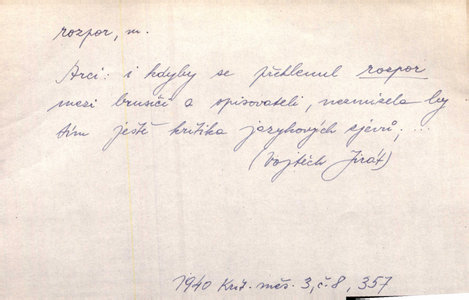 rozpor, m.
Arci: i kdyby se překlenul rozpor
mezi brusiči a spisovateli, nezmizela by
tím ještě kritika jazykových zjevů; ...
(Vojtěch Jirát)
1940 Krit. měs. 3, č. 8, 357